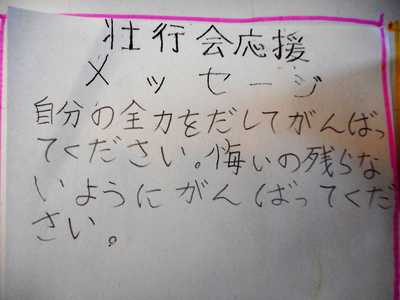 壮行会応援
メッセージ
自分の全力をだしてがんばっ
てください。悔いの残らな
いようにがんばってくだ
さい。